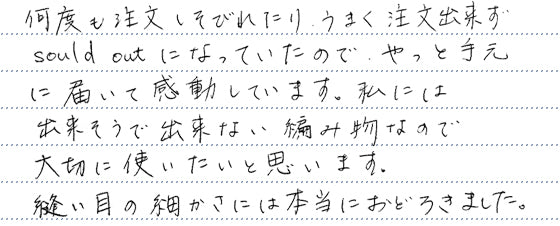 何度も注文しそびれたり、うまく注文出来ず
sould outになっていたので、やっと手元
に届いて感動しています。私には
出来そうで出来ない編み物なので
大切に使いたいと思います。
縫い目の細かさには本当におどろきました。